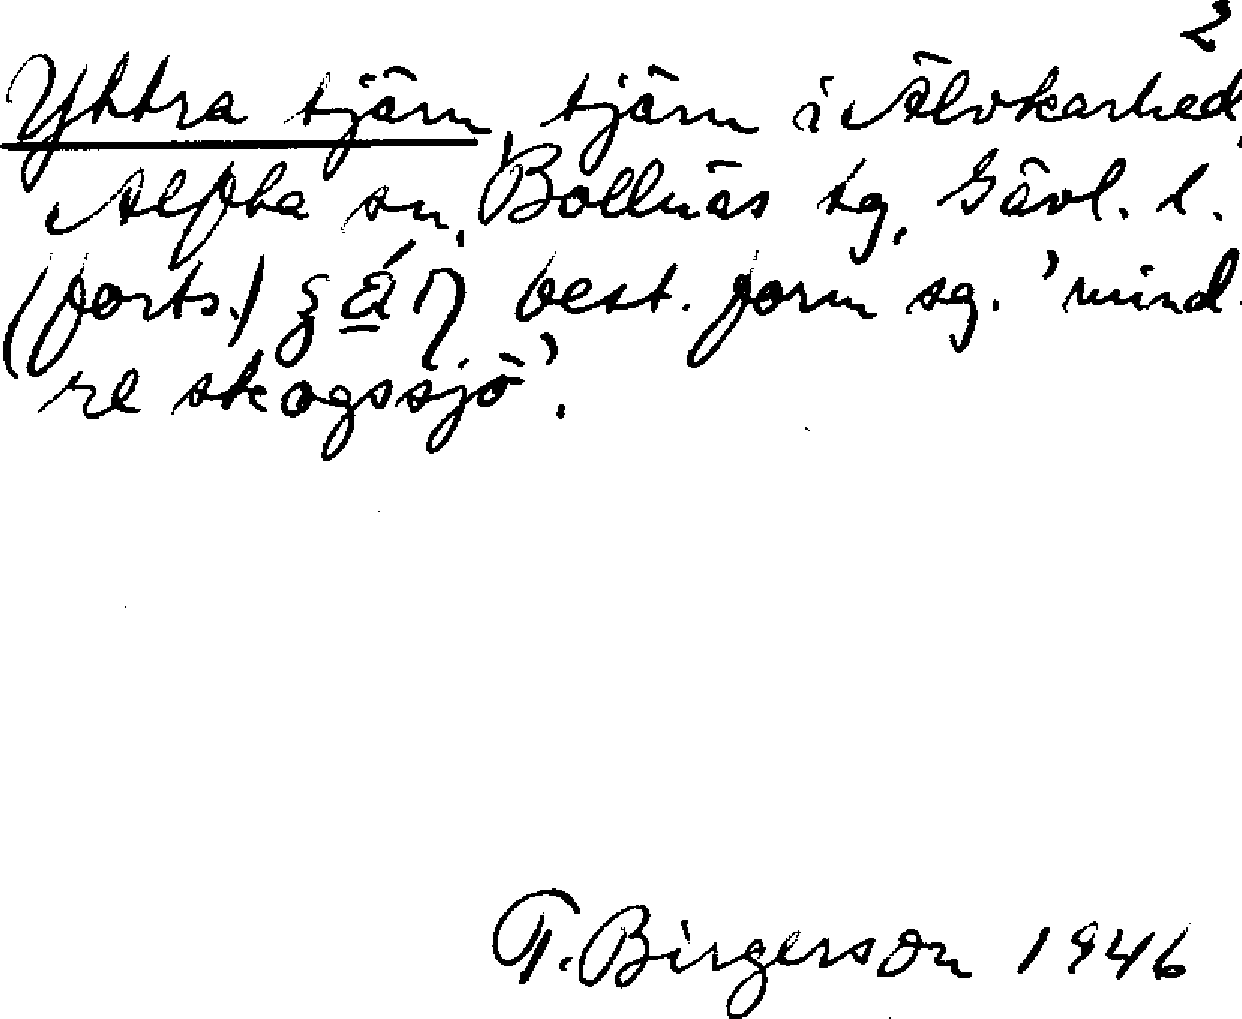 2
Yttra tjärn, tjärn i Älvkarhed,
Alfta sn, Bollnäs tg, Gävl. l.
(forts.) best. form sg. 'mind-
re skogssjö'.
T. Birgerson 1946